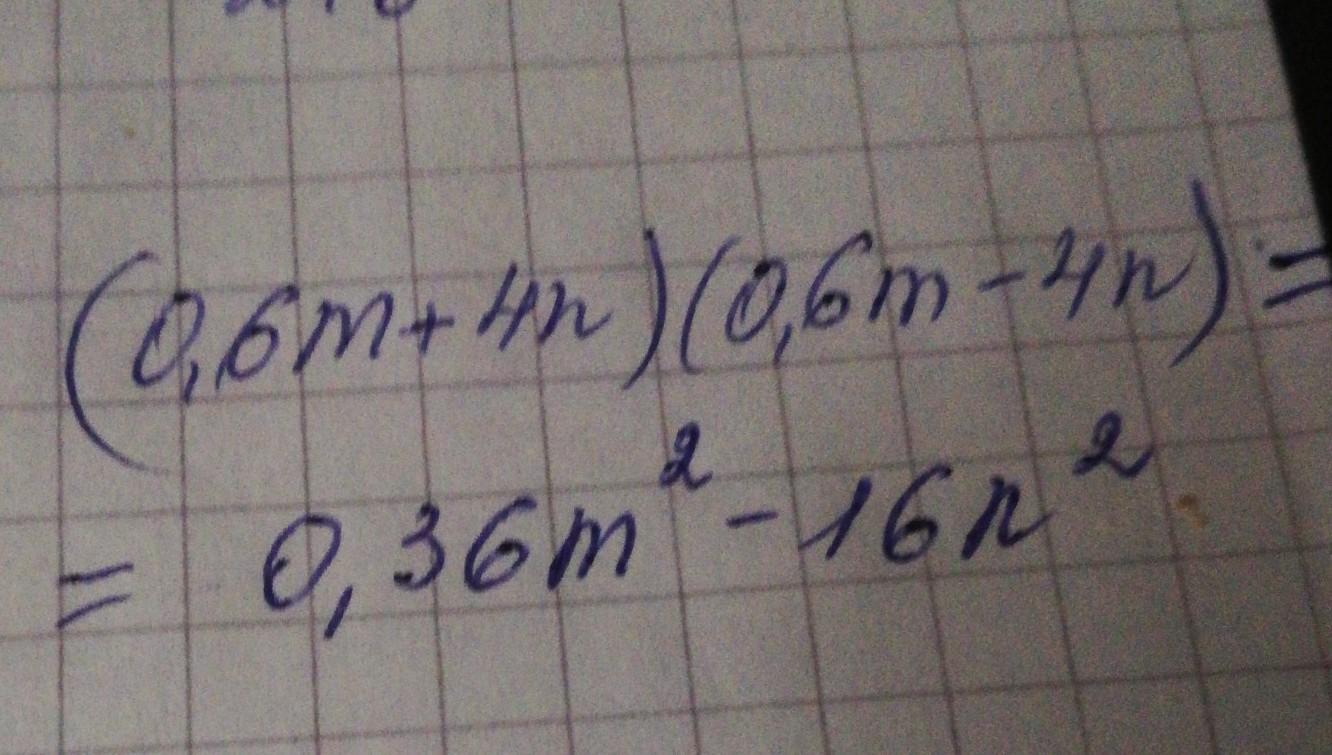 (0,6m+4n)(0,6m-4n)=
= 0,36m²-16n²